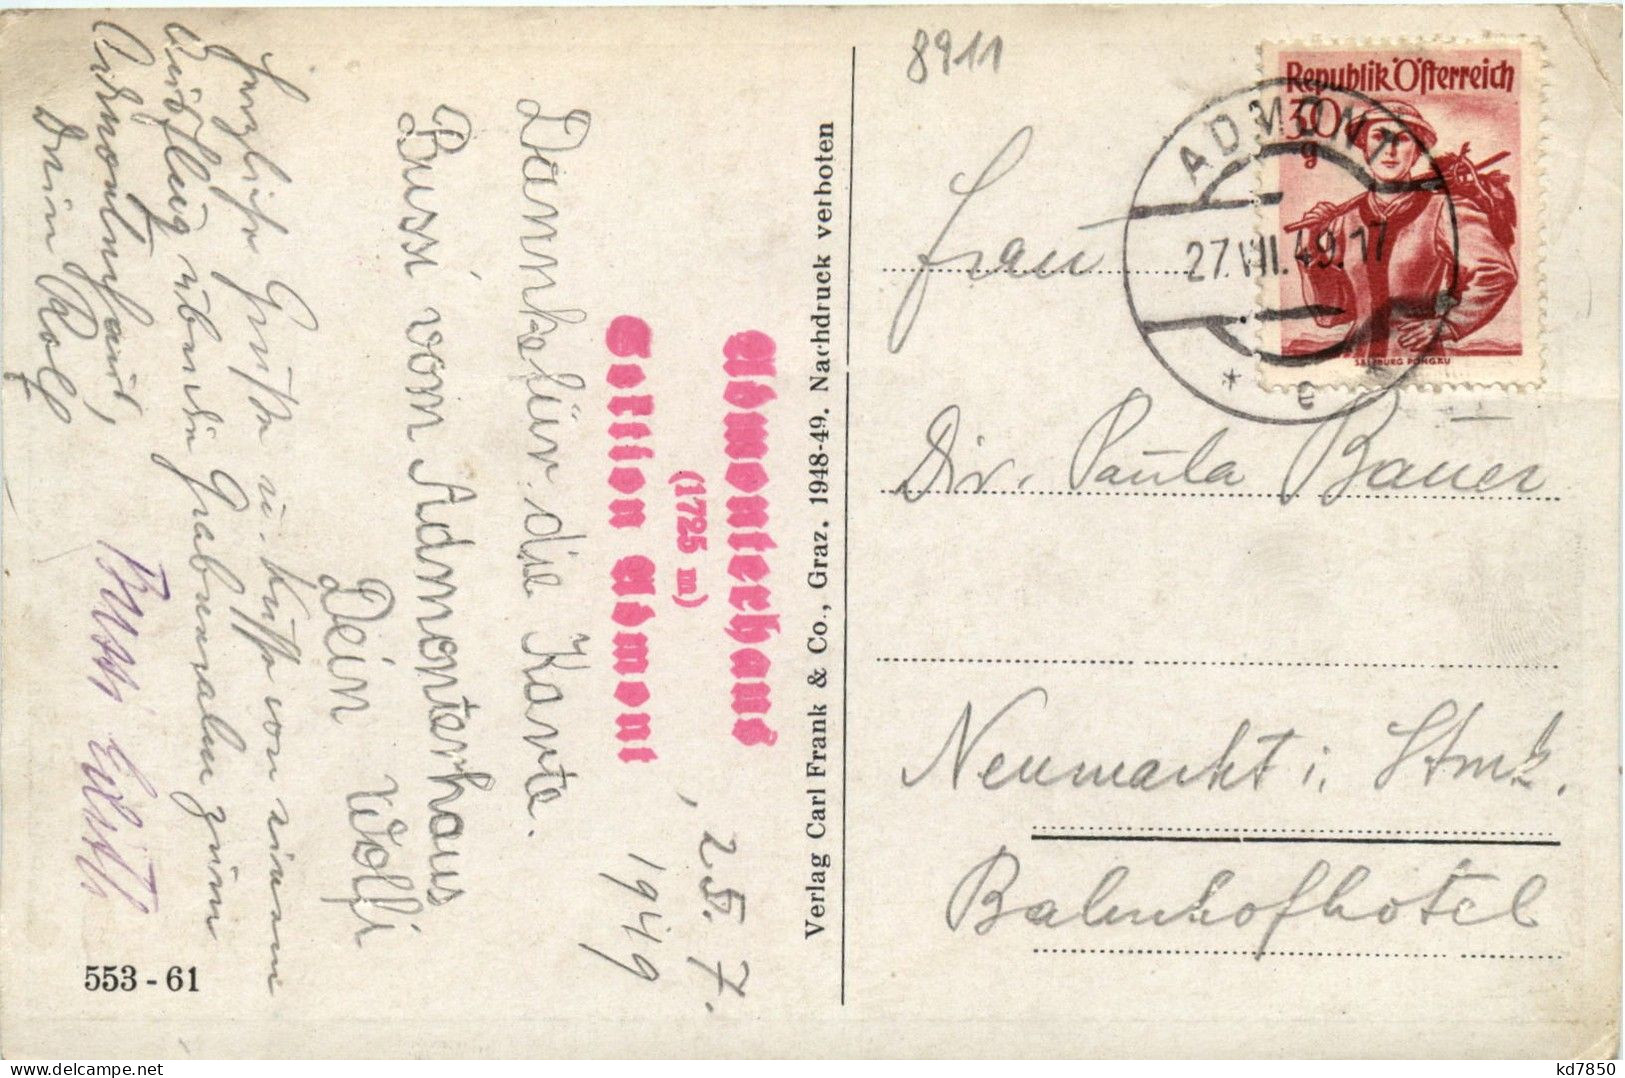 8911
Republik Österreich
30
g
SALZBURG PONGAU
ADMONT
27.VII.49.17
* e *
Frau
Dir. Paula Bauer
Neumarkt i. Stmk.
Bahnhofhotel
Verlag Carl Frank & Co., Graz. 1948-49. Nachdruck verboten
Admonterhaus
(1725 m)
Sektion Admont
, 25. 7.
1949
Dankefür die Karte.
Bussi vom Admonterhaus
Dein Wolfi
Herzliche Grüße u. Küsse von einem
Ausflug über den Grabneralm zum
Admonterhaus,
Dein Rolf
Bussi
553 - 61
kd7850